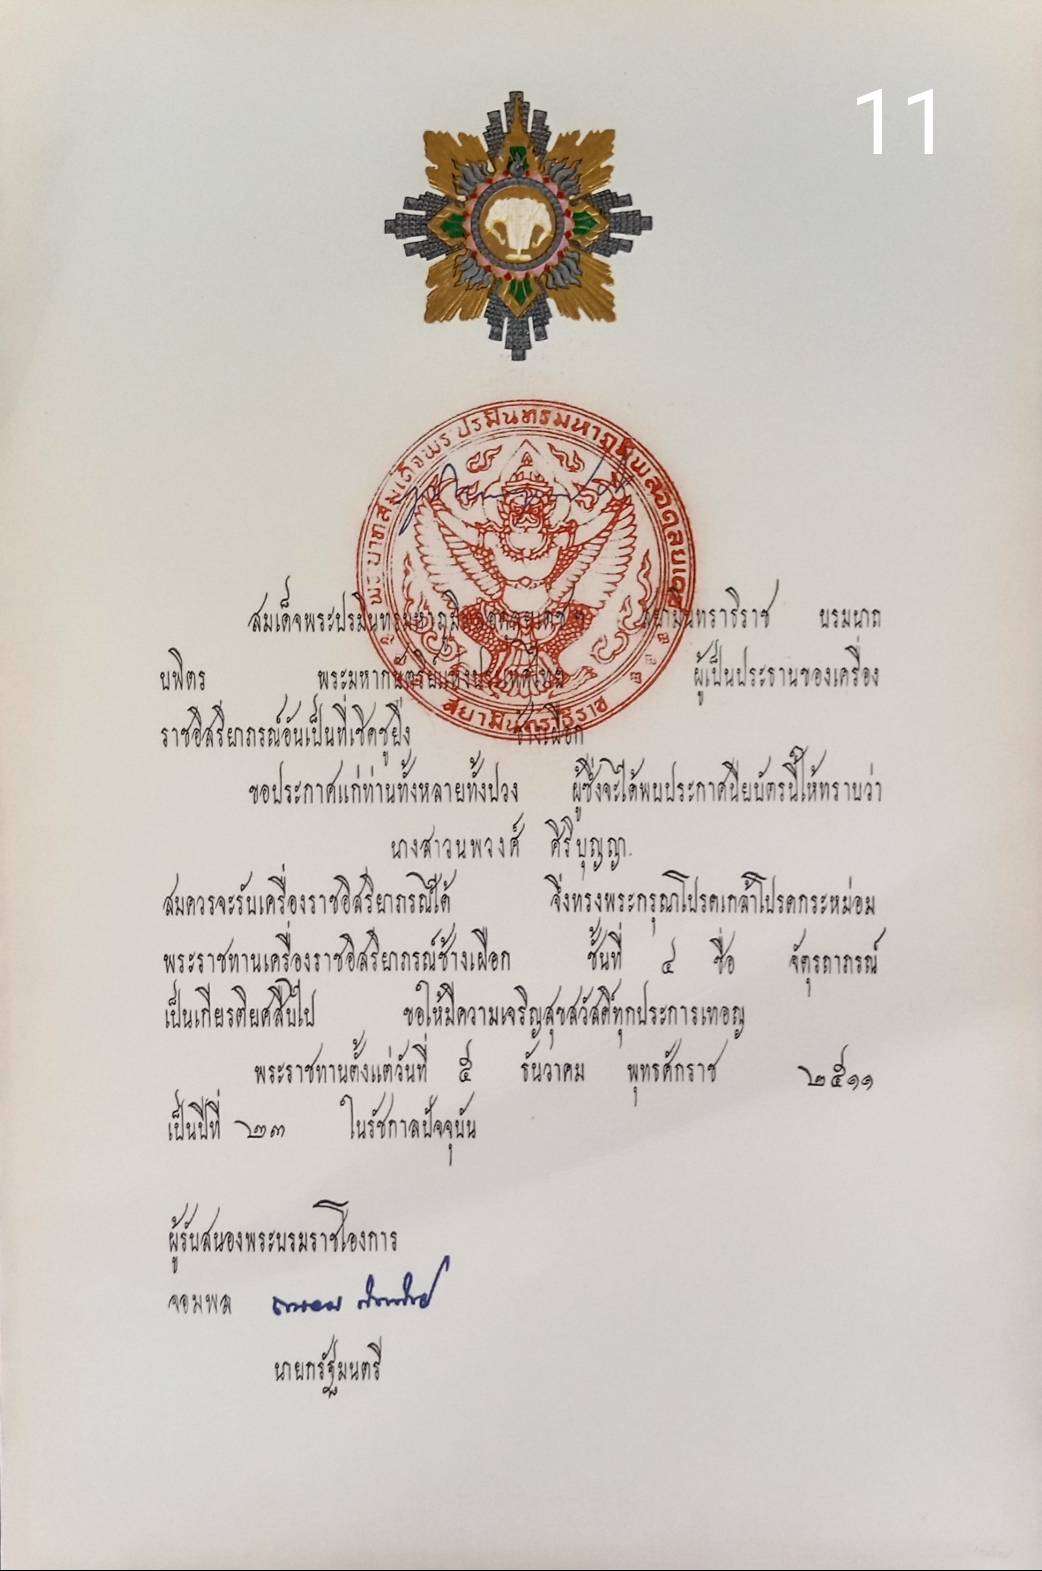 11
พระบาทสมเด็จพระปรมินทรมหาภูมิพลอดุลยเดช
สยามินทราธิราช
สมเด็จพระปรมินทรมหาภูมิพลอดุลยเดช ฯ สยามินทราธิราช บรมนาถ
บพิตร พระมหากษัตริย์แห่งประเทศไทย ผู้เป็นประธานของเครื่อง
ราชอิสริยาภรณ์อันเป็นที่เชิดชูยิ่ง ช้างเผือก
ขอประกาศแก่ท่านทั้งหลายทั้งปวง ผู้ซึ่งจะได้พบประกาศนียบัตรนี้ให้ทราบว่า
นางสาวนพวงศ์ ศิริบุญญา
สมควรจะรับเครื่องราชอิสริยาภรณ์ได้ จึงทรงพระกรุณาโปรดเกล้าโปรดกระหม่อม
พระราชทานเครื่องราชอิสริยาภรณ์ช้างเผือก ชั้นที่ ๔ ชื่อ จัตุรถาภรณ์
เป็นเกียรติยศสืบไป ขอให้มีความเจริญสุขสวัสดิ์ทุกประการเทอญ
พระราชทานตั้งแต่วันที่ ๕ ธันวาคม พุทธศักราช ๒๕๑๑
เป็นปีที่ ๒๓ ในรัชกาลปัจจุบัน
ผู้รับสนองพระบรมราชโองการ
จอมพล ถนอม กิตติขจร
นายกรัฐมนตรี